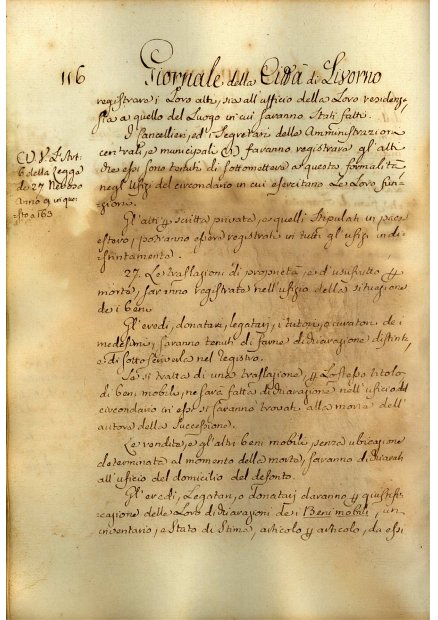 116 Giornale della Città di Livorno
registrare i Loro atti, sia all'ufficio della Loro residen-
za a quello del Luogo in cui saranno stati fatti.
I Cancellieri, ed i Segretari delle Amministrazioni
centrali, e municipali (1) faranno registrare gli atti
che essi sono tenuti di sottomettere a questa formalità
negl'Ufizj del circondario in cui esercitano Le Loro fun-
zioni.
Gl'atti scritta privata, e quelli stipulati in paese
estero, potranno essere registrati in tutti gl'ufizj indi-
stintamente.
27. Le traslazioni di proprietà, e d'usufrutto
morte, saranno registrate nell'ufizio della situazione
de i beni
Gl'eredi, donatarj, legatarj, i tutori, o curatori de i
medesimi, saranno tenuti di farne dichiarazione distinta,
e di sottoscriverla nel registro.
Se si tratta di una traslazione, Lo stesso titolo
di beni mobili, ne sarà fatta dichiarazione nell'ufficio del
circondario in essi si saranno trovati alla morte dell'
autore della successione.
Le rendite, e gl'altri beni mobili, senza ubicazione
determinata al momento della morte, saranno dichiarati
all'ufficio del domicilio del defonto.
Gl'eredi, Legatarj, o donatarj daranno giustifi-
cazione delle Loro dichiarazioni de i Beni mobili, un
inventario, o Stato di Stima, articolo articolo, da essi
6 della Legge
de 27
anno 9 in que-
sto a 163